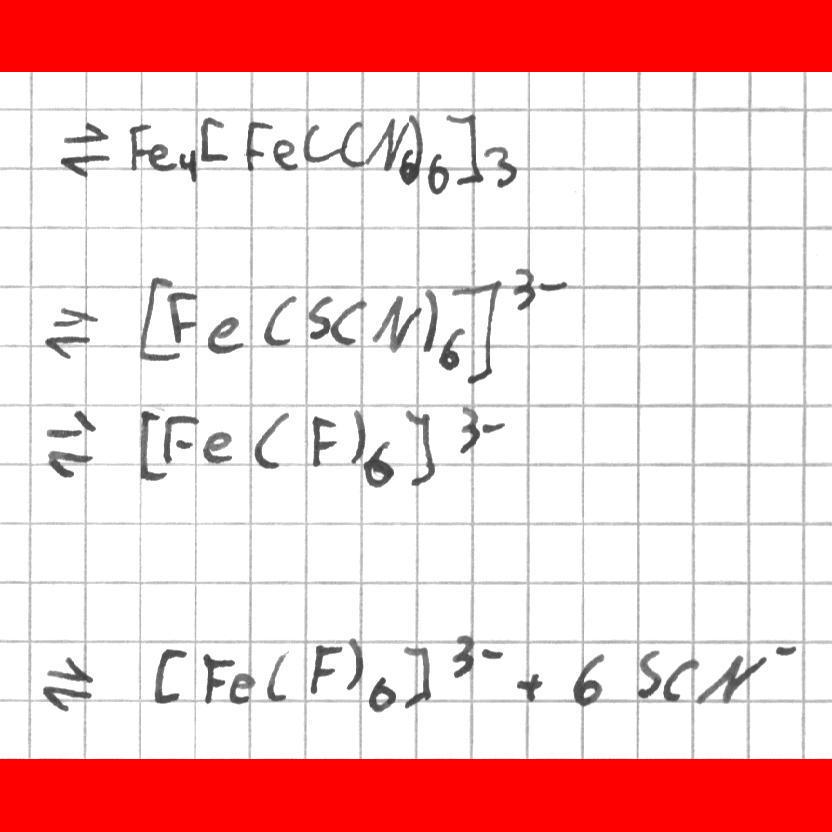 ⇌ Fe₄[Fe(CN)₆]₃
⇌ [Fe(SCN)₆]³⁻
⇌ [Fe(F)₆]³⁻
⇌ [Fe(F)₆]³⁻ + 6 SCN⁻